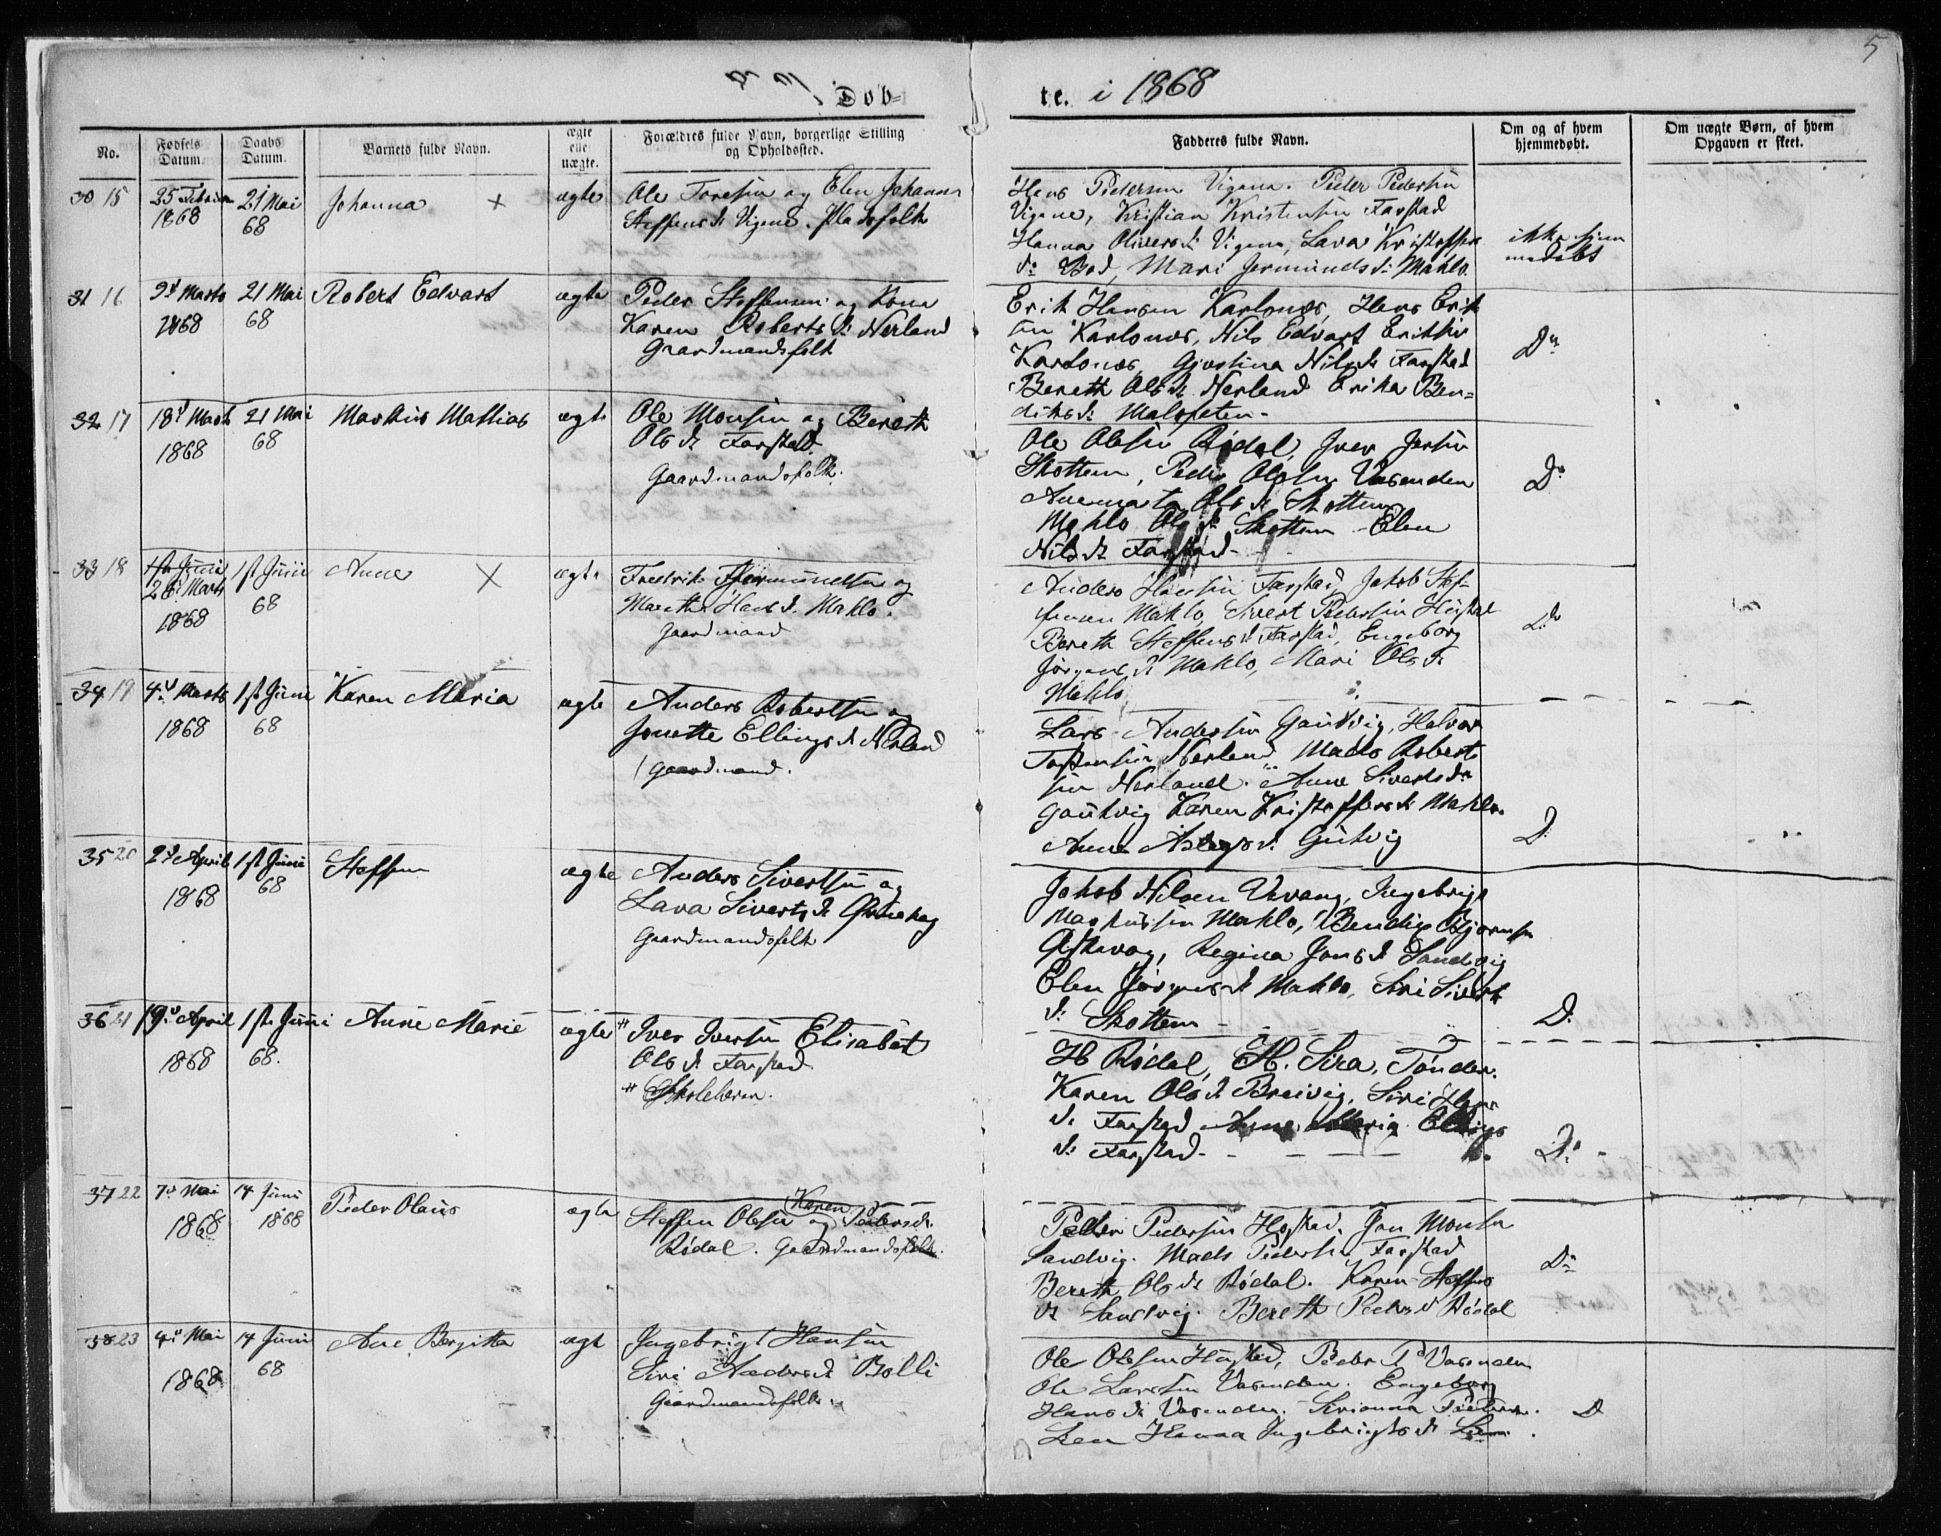 5
Døb=
te. i 1868
No.
Fødsels Datum.
Daabs Datum.
Barnets fulde Navn.
ægte elle uægte.
Forældres fulde Navn, borgerlige Stilling
og Opholdssted.
Fadderes fulde Navn.
Om og af hvem
hjemmedøbt.
Om uægte Børn, af hvem
Opgaven er skeet.
30 15
25 Februar
1868
21 Mai
68
Johanna ×
ægte
Ole Toresen og Elen Johanna
Steffensd: Vigene. Pladsfolk
Hans Pedersen Vigene. Peder Pedersen
Vigene, Kristian Kristensen Farstad
Hanna Olivers d: Vigene, Lava Kristoffers
d: Bod, Mari Jermunds d: Mahlo
ikke hjem
medøbt
31 16
9d Marts
1868
21 Mai
68
Robert Edvart
ægte
Peder Steffensen og Kona
Karen Roberts d: Nerland
Graardmandsfolk
Erik Hansen Karlsnes, Hans Erik
sen Karlsnes, Nils Edvart Eriksen
Karlsnes, Gjertina Nils d: Farstad
Bereth Ols d: Nerland Erika Ben=
diks d: Malefeten -
Do
32 17
18d Marts
1868
21 Mai
68
Markus Mathias
ægte
Ole Monsen og Bereth
Ols d: Farstad.
Gaardmandsfolk.
Ole Olesen Rødal, Iver Jersen
Skottem, Peder Olsen Vasenden
Annemarta Ols d: Skottem
Mahlo Ols d: Skottem Elen
Nils d: Farstad -
Do
33 18
1ste Juni
28 Marts
1868
1st Juni
68
Anne ×
ægte
Fredrik Jermundsen og
Mareth Hans d: Mahlo.
Gaardmand
Anders Hansen Farstad, Jakob Stef
fensen Mahlo, Sivert Pedersen Hustad
Bereth Steffens d: Farstad, Engeborg
Jørgens d: Mahlo, Mari Ols d:
Mahlo
Do
34 19
4d Marts
1868
1st Juni
68
Karen Maria
ægte
Anders Robertsen og
Jonette Ellings d: Nerland
Gaardmand.
Lars Andersen Gautvig, Halvor
Torstensen Nerland, Mads Robert
sen Nerland. Anne Siverts d:
Gautvig Karen Kristoffers d: Mahlo.
Anne Aslags d: Gutvig
D:
35 20
2d April
1868
1st Juni
68
Steffen
ægte
Anders Sivertsen og
Lava Siverts d:
Gaardmandsfolk
Jakob Nilsen Vevang, Ingebrigt
Markussen Mahlo, Bendix Bjørnsen
Askevog, Regina Jons d: Sandvig
Elen Jørgens d: Mahlo, Siri Siverts
d: Skottem -
D:
36 21
19d April
1868
1ste Juni
68.
Anne Marie
ægte
# Iver Iversen Elisabet
Ols d: Farstad
# Skolelærer.
H Rødal, H. Sira, Tønder.
Karen Ols d: Breivig, Siri Hans
d: Farstad Anne Maria Ellings
d: Farstad -
Do
37 22
7d Mai
1868
14 Juni
1868
Peder Olaus
ægte
Steffen Olesen og Karen Peders d:
Rødal. Gaardmandsfolk.
Peder Pedersen Hostad, Jon Monsen
Sandvig. Mads Pedersen Farstad
Bereth Ols d: Rødal. Karen Steffens
d: Sandvig. Bereth Peders d Rødal
Do
38 23
4d Mai
1868
14 Juni
68
Ane Bergitta
ægt
Ingebrigt Hansen
Siri Anders d: Bolli
Gaardmandsfolk.
Ole Olesen Hustad, Peder P Vasenden
Ole Larsen Vasenden. Engeborg
Hans d: Vasenden. Serianna Peders
Leen Hanna Ingebrigts d: Leen.
D